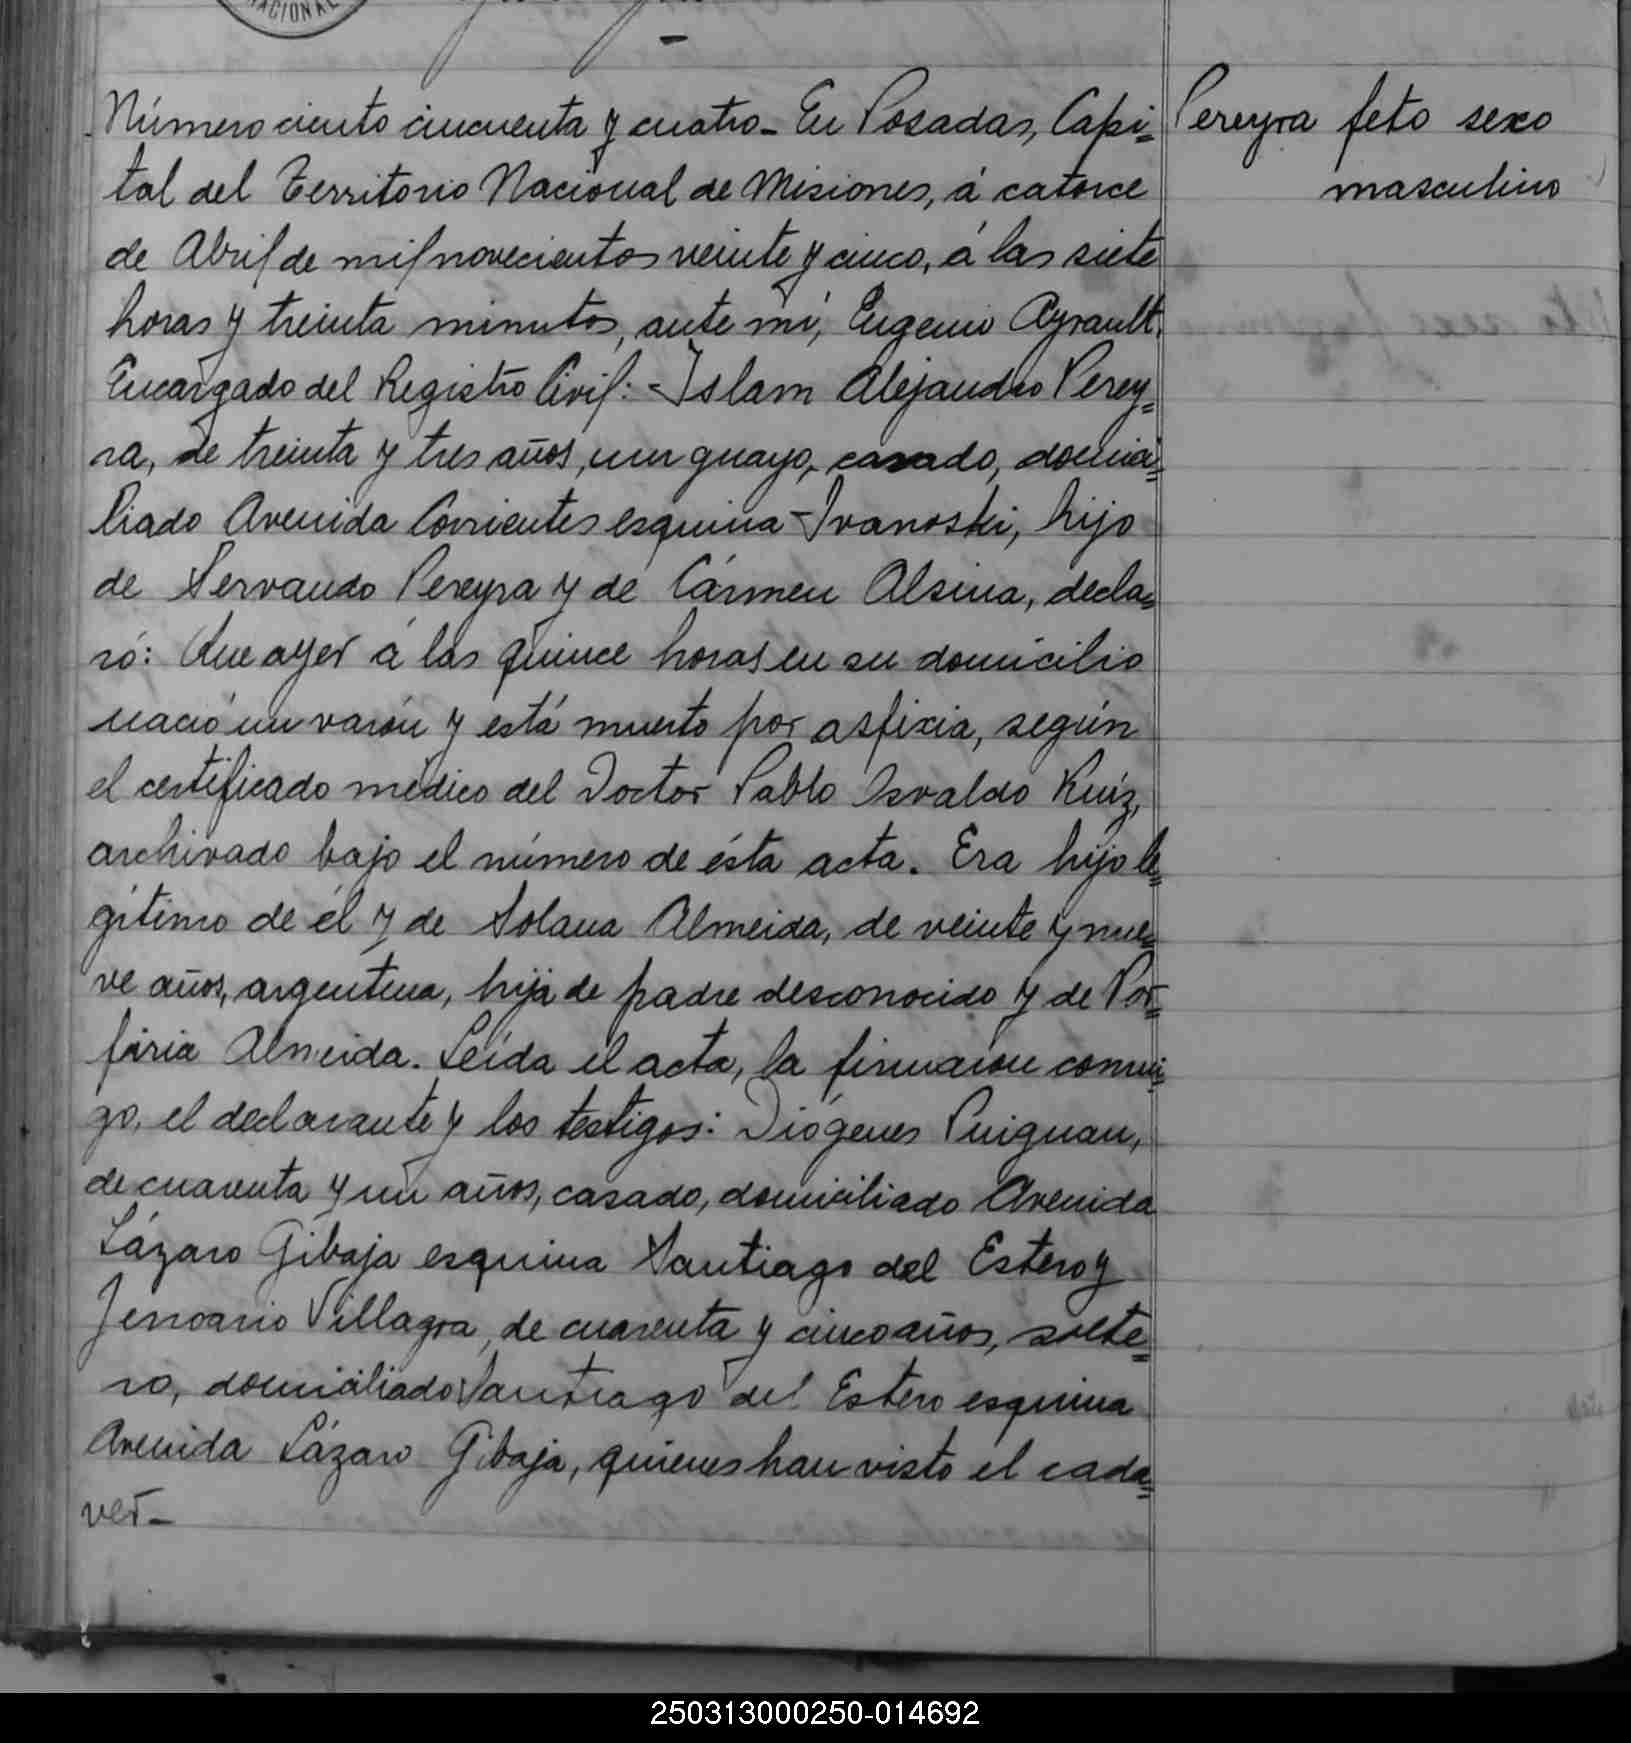 NACIONAL
Número ciento cincuenta y cuatro - En Posadas, Capi=
tal del Territorio Nacional de Misiones, á catorce
de Abril de mil novecientos veinte y cinco, á las siete
horas y treinta minutos, ante mí, Eugenio Ayrault.
Encargado del Registro Civil: - Islam Alejandro Perey=
ra, de treinta y tres años, uruguayo, casado, domici=
liado Avenida Corrientes esquina Ivanoski, hijo
de Servando Pereyra y de Cármen Alsina, decla=
ró: Que ayer á las quince horas en su domicilio
nació un varón y está muerto por asfixia, según
el certificado médico del Doctor Pablo Osvaldo Ruíz,
archivado bajo el número de ésta acta. Era hijo le=
gítimo de él y de Solana Almeida, de veinte y nue=
ve años, argentina, hija de padre desconocido y de Por=
firia Almeida. Leída el acta, la firmaron conmi=
go, el declarante y los testigos: Diógenes Puignau,
de cuarenta y un años, casado, domiciliado Avenida
Lázaro Gibaja esquina Santiago del Estero y
Jenoario Villagra, de cuarenta y cinco años, solte=
ro, domiciliado Santiago del Estero esquina
Avenida Lázaro Gibaja, quienes han visto el cada=
ver -
Pereyra feto sexo
masculino
250313000250-014692